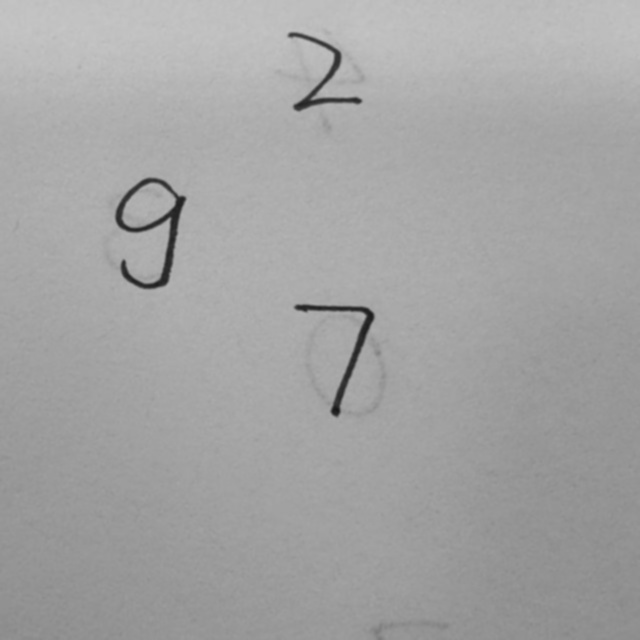 2
9
7